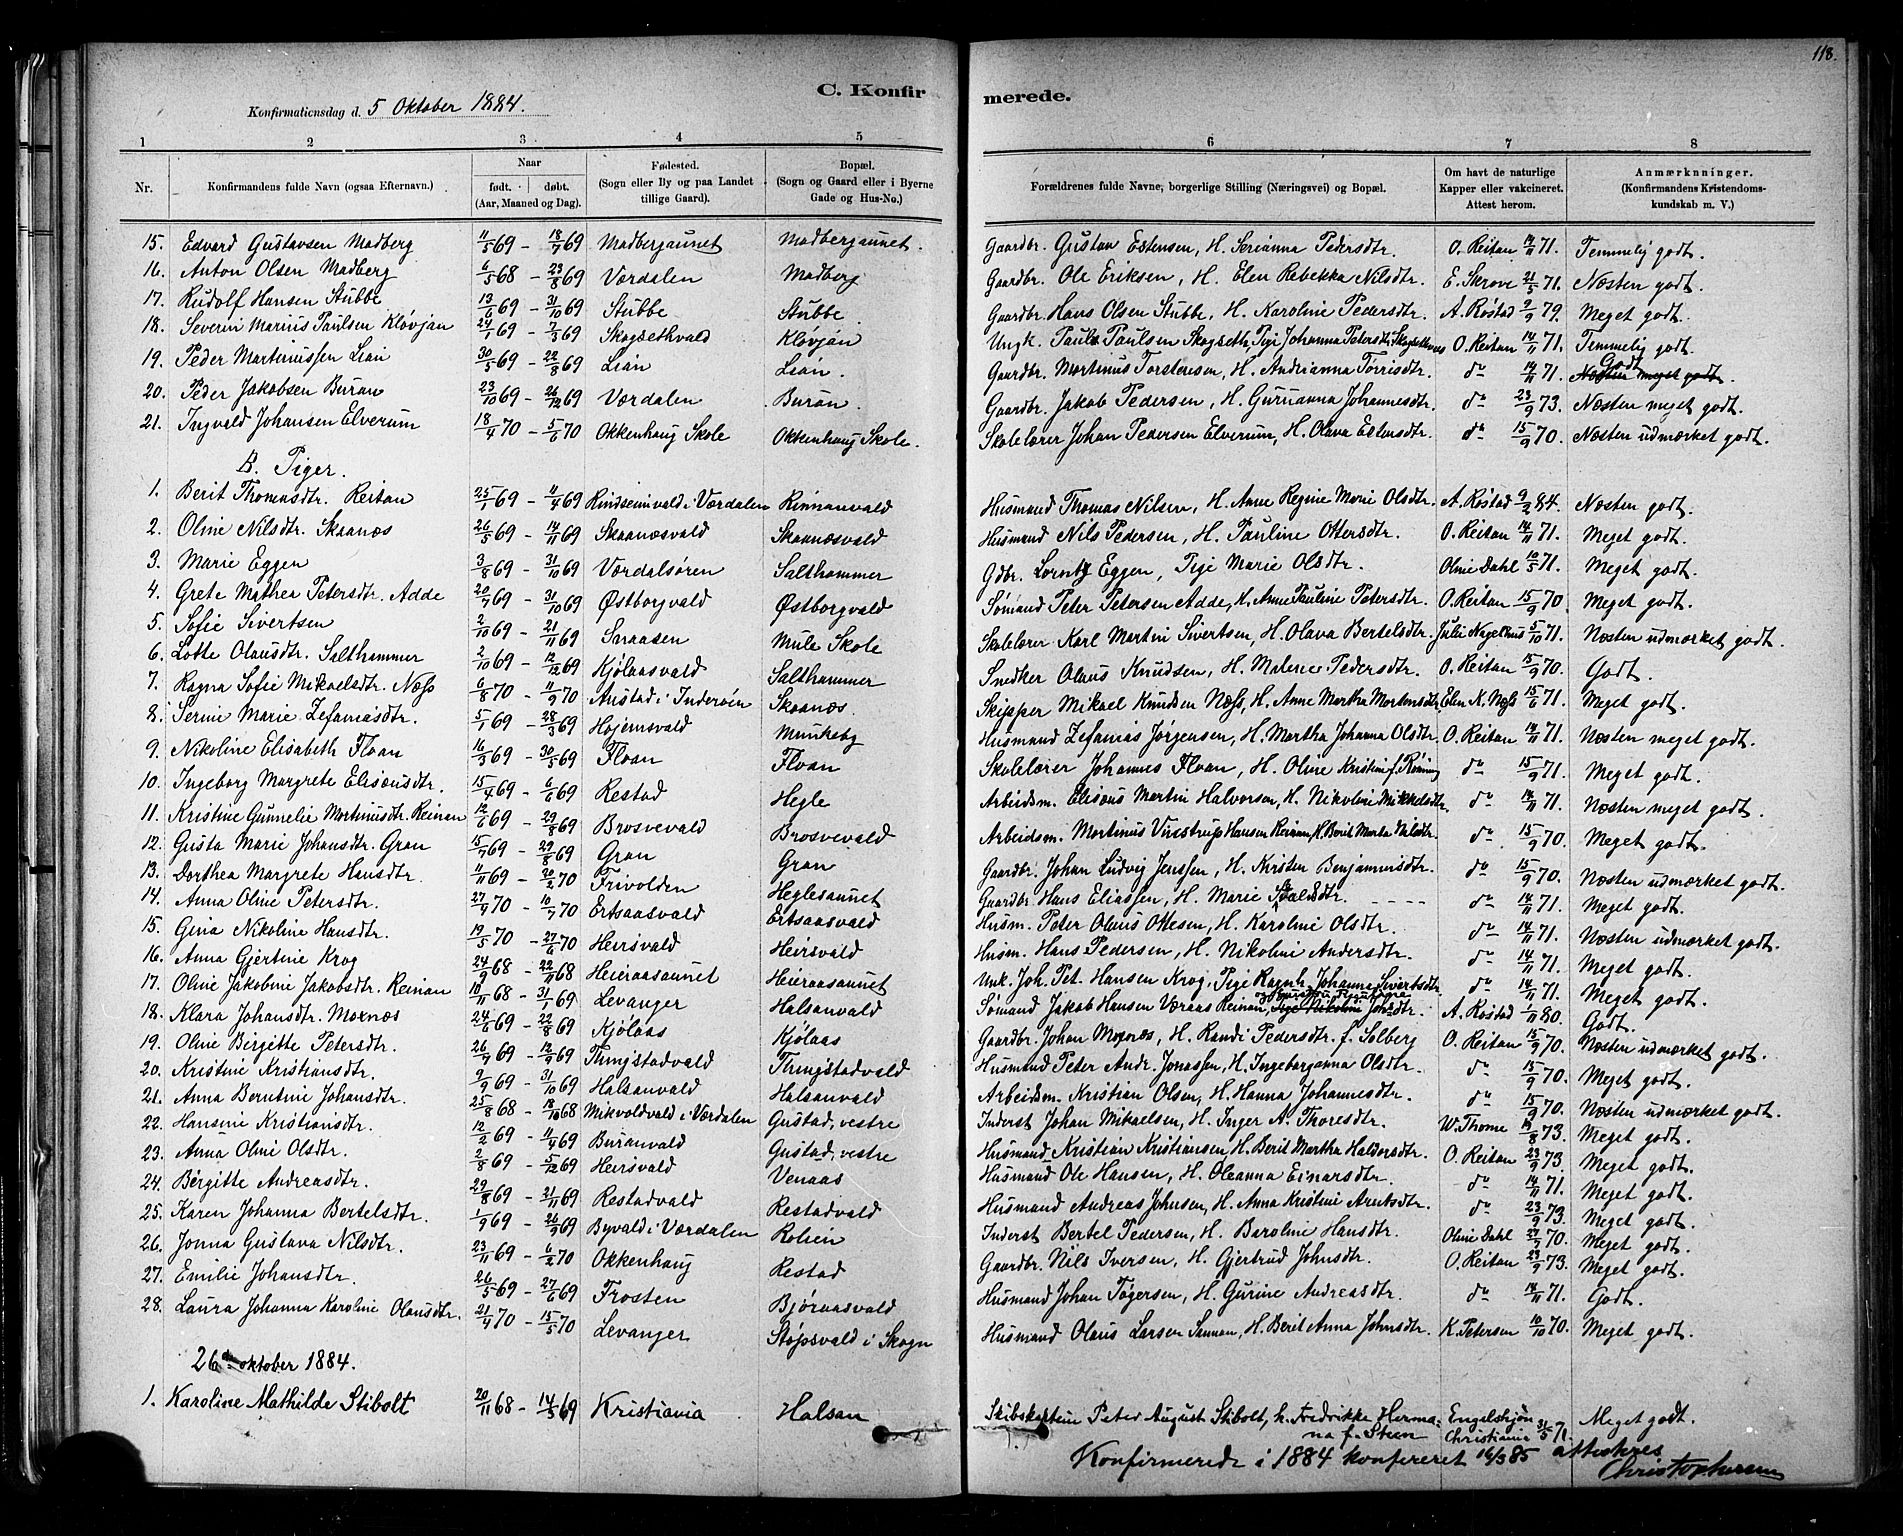 118.
C. Konfirmerede.
Konfirmationsdag d. 5 Oktober 1884.
1 2 3 4 5 6 7 8
Nr. Konfirmandens fulde Navn (ogsaa Efternavn.) Naar født. døbt. (Aar, Maaned og Dag). Fødested. (Sogn eller By og paa Landet tillige Gaard). Bopæl. (Sogn og Gaard eller i Byerne Gade og Hus-No.) Forældrenes fulde Navne, borgerlige Stilling (Næringsvei) og Bopæl. Om havt de naturlige Kapper eller vakcineret. Attest herom. Anmærknninger. (Konfirmandens Kristendomskundskab m. V.)
15. Edvard Gustavsen Madberg 11/5 69 – 18/7 69 Madbergaunet Madbergaunet. Gaardbr. Gustav Estensen, H. Serianna Pedersdtr. O. Reitan 14/11 71. Temmelig godt.
16. Anton Olsen Madberg 6/5 68 – 23/8 69 Værdalen Madberg Gaardbr. Ole Eriksen, H. Elen Rebekka Nilsdtr. E. Skrove 21/5 71. Næsten godt.
17. Rudolf Hansen Stubbe 13/6 69 – 31/10 69 Stubbe Stubbe Gaardbr. Hans Olsen Stubbe, H. Karoline Pedersdtr. A. Røstad 9/9 79. Meget godt.
18. Severin Marius Paulsen Kløvjan 24/1 69 – 7/3 69 Skogsethvald Kløvjan Ungk. Paul Paulsen Skogseth Pige Johanna Petersdtr. O. Reitan 14/11 71. Temmelig godt.
19. Peder Martinussen Lian 30/5 69 – 22/8 69 Lian Lian. Gaardbr. Martinus Torstensen, H. Andrianna Tørrisdtr. do 14/11 71. Godt
20. Peder Jakobsen Buran 23/10 69 – 26/12 69 Værdalen Buran Gaardbr. Jakob Pedersen, H. Guruanna Johannesdtr. do 23/9 73. Næsten meget godt.
21. Ingvald Johansen Elverum 18/4 70 – 5/6 70 Okkenhaug Skole Okkenhaug Skole. Skolelærer Johan Pedersen Elverum, H. Olava Estensdtr. do 15/9 70. Næsten udmærket godt.
B. Piger.
1. Berit Thomasdtr. Reitan 25/1 69 – 11/4 69 Rindsemvald i Værdalen Rinnanvald Husmand Thomas Nilsen, H. Anne Regine Marie Olsdtr. A. Røstad 9/2 84. Næsten godt.
2. Oline Nilsdtr. Skaanæs 26/5 69 – 14/11 69 Skaanæsvald Skaanæsvald Husmand Nils Pedersen, H. Pauline Ottersdtr. O. Reitan 14/11 71. Meget godt.
3. Marie Eggen 3/8 69 – 31/10 69 Værdalsøren Salthammer Gdbr. Lorntz Eggen, Pige Marie Olsdtr. Oline Dahl 10/5 71. Meget godt.
4. Grete Mathea Petersdtr. Adde 20/7 69 – 31/10 69 Østborgvald Østborgvald Sømand Peter Petersen Adde, H. Anne Pauline Petersdtr. O. Reitan 15/9 70. Meget godt.
5. Sofie Sivertsen 2/10 69 – 21/11 69 Snaasen Mule Skole Skolelærer Karl Martin Sivertsen, H. Olava Bertelsdtr. Julie Nagelhus 5/10 71. Næsten udmærket godt.
6. Lotte Olausdtr. Salthammer 2/10 69 – 12/12 69 Kjølaasvald Salthammer Snedker Olaus Knudsen, H. Malene Pedersdtr. O. Reitan 15/9 70. Godt.
7. Ragna Sofie Mikaelsdtr. Næss 6/8 70 – 11/9 70 Austad i Inderøen Skaanæs. Skipper Mikael Knudsen Næss, H. Anne Martha Mortensdtr. Elen K. Næss 15/6 71. Meget godt.
8. Serine Marie Zefaniasdtr. 5/1 69 – 28/3 69 Hojemsvald Munkeby Husmand Zefanias Jørgensen, H. Martha Johanna Olsdtr. O. Reitan 14/11 71. Næsten meget godt.
9. Nikoline Elisabeth Floan 16/3 69 – 30/5 69 Floan Floan Skolelærer Johannes Floan, H. Oline Kristine f. Rønning do 15/9 71. Meget godt.
10. Ingeborg Margrete Elisæusdtr. 15/4 69 – 6/6 69 Restad Hegle Arbeidsm. Elisæus Martin Halvorsen, H. Nikoline Mikkelsdtr. do 14/11 71. Næsten meget godt.
11. Kristine Gunnelie Martinusdtr. Reinan 12/6 69 – 29/8 69 Brosvevald Brosvevald Arbeidsm. Martinus Hansen Reinan, H. Berit Marta Nilsdtr. do 15/9 70. Meget godt.
12. Gusta Marie Johansdtr. Gran 15/7 69 – 29/8 69 Gran Gran Gaardbr. Johan Ludvig Jenssen, H. Kirsten Benjaminsdtr. do 15/9 70. Næsten udmærket godt.
13. Dorthea Margrete Hansdtr. 11/11 69 – 20/2 70 Frivolden Heglesaunet Gaardbr. Hans Eliassen, H. Marie do 14/11 71. Meget godt.
14. Anna Oline Petersdtr. 27/4 70 – 10/7 70 Ertsaasvald Ertsaasvald Husm. Peter Olaus Ottesen, H. Karoline Olsdtr. do 14/11 71. Næsten udmærket godt.
15. Gina Nikoline Hansdtr. 19/5 70 – 27/6 70 Heirsvald Heirsvald Husm. Hans Pedersen, H. Nikoline Andersdtr. do 14/11 71. Meget godt.
16. Anna Gjertine Krog 24/9 68 – 22/11 68 Heieraasaunet Heieraasaunet Unk. Joh. Pet. Hansen Krog, Pige Ragnh. Johanna Sivertsdtr. do 14/11 71. Meget godt.
17. Oline Jakobine Jakobsdtr. Reinan 10/11 68 – 31/1 69 Levanger Halsanvald Sømand Jakob Hansen Væraas Reinan, A. Røstad 1/11 80. Godt.
18. Klara Johansdtr. Moxnæs 24/6 69 – 22/8 69 Kjølaas Kjølaas Gaardbr. Johan Moxnæs, H. Randi Pedersdtr. f. Solberg O. Reitan 15/9 70. Næsten udmærket godt.
19. Oline Birgitte Petersdtr. 26/7 69 – 12/9 69 Thingstadvald Thingstadvald Husmand Peter Andr. Jonassen, H. Ingeborganna Olsdtr. do 15/9 70. Meget godt.
20. Kristine Kristiansdtr. 9/9 69 – 31/10 69 Halsanvald Halsanvald Arbeidsm. Kristian Olsen, H. Hanna Johannesdtr. do 15/9 70. Næsten udmærket godt.
21. Anna Berntine Johansdtr. 25/8 68 – 18/10 68 Mikvoldvald i Værdalen Gustad, vestre Inderst Johan Mikaelsen, H. Inger A. Thoresdtr. W. Thome 19/8 73. Meget godt.
22. Hansine Kristiansdtr. 12/2 69 – 11/4 69 Buranvald Gustad, vestre Husmand Kristian Kristiansen, H. Berit Martha Haldorsdtr. O. Reitan 23/9 73. Meget godt.
23. Anna Oline Olsdtr. 2/8 69 – 5/12 69 Heirsvald Venaas Husmand Ole Hansen, H. Oleanna Einarsdtr. do 14/11 71. Meget godt.
24. Birgitte Andreasdtr. 29/8 69 – 21/11 69 Restadvald Restadvald Husmand Andreas Johnsen, H. Anna Kristine Arntsdtr. do 23/9 73. Meget godt.
25. Karen Johanna Bertelsdtr. 1/9 69 – 26/9 69 Byvald i Værdalen Rolien Inderst Bertel Pedersen, H. Baroline Hansdtr. Oline Dahl 27/7 70. Meget godt.
26. Jonna Gustava Nilsdtr. 23/11 69 – 6/2 70 Okkenhaug Restad Gaardbr. Nils Iversen, H. Gjertrud Johnsdtr. O. Reitan 23/9 73. Meget godt.
27. Emilie Johansdtr. 26/5 69 – 27/6 69 Frosten Bjøraasvald Husmand Johan Tøgersen, H. Gurine Andreasdtr. do 14/11 71. Godt.
28. Laura Johanna Karoline Olausdtr. 21/4 70 – 15/5 70 Levanger Støpsvald i Skogn Husmand Olaus Larsen Sannan, H. Berit Anna Johnsdtr. K. Petersen 10/10 70. Meget godt.
26de oktober 1884.
1. Karoline Mathilde Stibolt 20/11 68 – 14/3 69 Kristiania Halsan Skibskaptein Peter August Stibolt, h. Fredrikke Hermana f. Steen Engelshjøn Christiania 31/5 71. Meget godt.
Konfirmerede i 1884 konfereret 16/3 85 attesteres
Christophersen